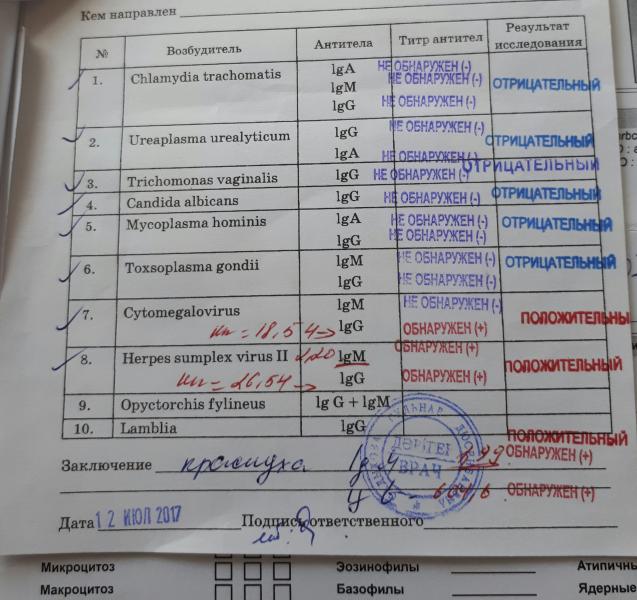 Кем направлен
№ Возбудитель Антитела Титр антител Результат исследования
1. Chlamydia trachomatis lgA НЕ ОБНАРУЖЕН (-)
lgM НЕ ОБНАРУЖЕН (-) ОТРИЦАТЕЛЬНЫЙ
lgG НЕ ОБНАРУЖЕН (-)
2. Ureaplasma urealyticum lgG НЕ ОБНАРУЖЕН (-) ОТРИЦАТЕЛЬНЫЙ
lgA НЕ ОБНАРУЖЕН (-)
3. Trichomonas vaginalis lgG НЕ ОБНАРУЖЕН (-) ОТРИЦАТЕЛЬНЫЙ
4. Candida albicans lgG НЕ ОБНАРУЖЕН (-) ОТРИЦАТЕЛЬНЫЙ
5. Mycoplasma hominis lgA НЕ ОБНАРУЖЕН (-) ОТРИЦАТЕЛЬНЫЙ
lgG НЕ ОБНАРУЖЕН (-)
6. Toxsoplasma gondii lgM НЕ ОБНАРУЖЕН (-) ОТРИЦАТЕЛЬНЫЙ
lgG НЕ ОБНАРУЖЕН (-)
7. Cytomegalovirus lgM НЕ ОБНАРУЖЕН (-) ПОЛОЖИТЕЛЬНЫ
= 18,54 lgG ОБНАРУЖЕН (+)
8. Herpes sumplex virus II 2,20 lgM ОБНАРУЖЕН (+) ПОЛОЖИТЕЛЬНЫЙ
= 26,54 lgG ОБНАРУЖЕН (+)
9. Opyctorchis fylineus lg G + lgM
10. Lamblia lgG ПОЛОЖИТЕЛЬНЫЙ
Заключение краснуха ВРАЧ ОБНАРУЖЕН (+)
ДӘРІГЕР
ОБНАРУЖЕН (+)
Дата 12 ИЮЛ 2017 Подпись ответственного
Микроцитоз Эозинофилы Атипичны
Макроцитоз Базофилы Ядерные